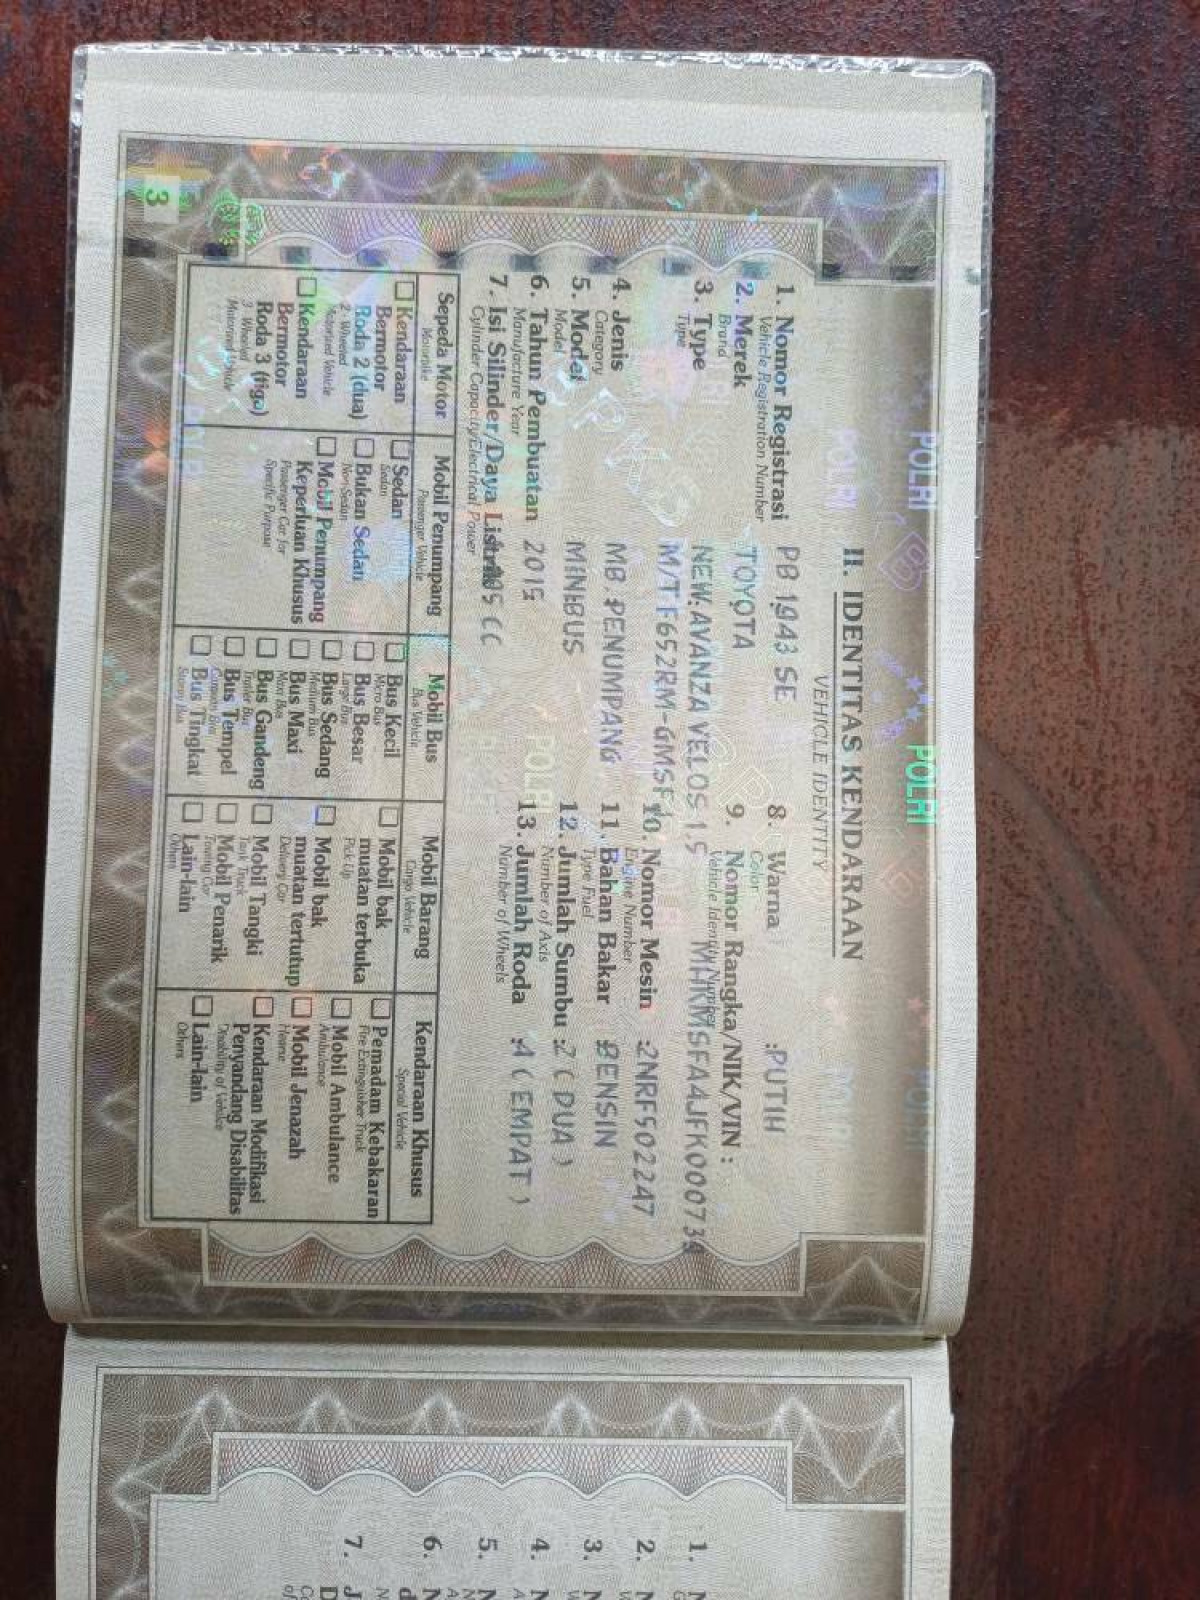 POLRI
II. IDENTITAS KENDARAAN
VEHICLE IDENTITY
1. Nomor Registrasi PB 1943 SE
Vehicle Registration Number
2. Merek TOYOTA
Brand
3. Type NEW.AVANZA VELOS 1.5
Type
M/T F652RM-GMSFJ
4. Jenis MB.PENUMPANG
Category
5. Model MINIBUS
Model
6. Tahun Pembuatan 2015
Manufacture Year
7. Isi Silinder/Daya Listrik CC
Cylinder Capacity/Electrical Power
8. Warna :PUTIH
Color
9. Nomor Rangka/NIK/VIN :
Vehicle Identity Number
10. Nomor Mesin :2NRF502247
Engine Number
11. Bahan Bakar :BENSIN
Type Fuel
12. Jumlah Sumbu :2 ( DUA )
Number of Axis
13. Jumlah Roda :4 ( EMPAT )
Number of Wheels
Sepeda Motor
Motorbike
Kendaraan
Bermotor
Roda 2 (dua)
2 - Wheeled
Motorised Vehicle
Kendaraan
Bermotor
Roda 3 (tiga)
3 - Wheeled
Motorised Vehicle
Mobil Penumpang
Passenger Vehicle
Sedan
Sedan
Bukan Sedan
Non-Sedan
Mobil Penumpang
Keperluan Khusus
Passenger Car for
Specific Purpose
Mobil Bus
Bus Vehicle
Bus Kecil
Micro Bus
Bus Besar
Large Bus
Bus Sedang
Medium Bus
Bus Maxi
Maxi Bus
Bus Gandeng
Trailer Bus
Bus Tempel
Bus Tingkat
Mobil Barang
Cargo Vehicle
Mobil bak
muatan terbuka
Pick Up
Mobil bak
muatan tertutup
Delivery Car
Mobil Tangki
Tank Truck
Mobil Penarik
Towing Car
Lain-lain
Others
Kendaraan Khusus
Special Vehicle
Pemadam Kebakaran
Fire Extinguisher Truck
Mobil Ambulance
Ambulance
Mobil Jenazah
Hearse
Kendaraan Modifikasi
Penyandang Disabilitas
Disability of Vehicle
Lain-lain
Others
3
1.
2.
3.
4.
5.
6.
7.